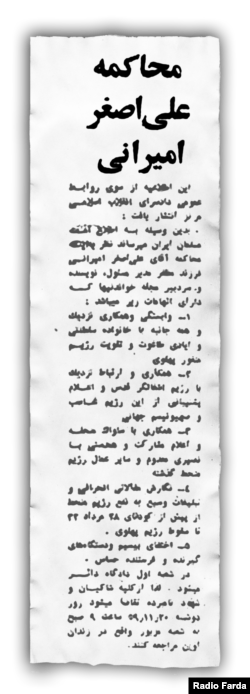 محاکمه
علی‌اصغر
امیرانی
این اطلاعیه از سوی روابط
عمومی دادسرای انقلاب اسلامی
مرکز انتشار یافت :
بدین وسیله به اطلاع
میرساند نظر
محاکمه آقای علی‌اصغر امیرانی
فرزند مدیر مسئول، نویسنده
و سردبیر مجله خواندنیها که
دارای اتهامات زیر میباشد :
۱ــ وابستگی وهمکاری نزدیك
و همه جانبه با خانواده سلطنتی
و ایادی طاغوت و تقویت رژیم
منفور پهلوی
۲ــ همکاری و ارتباط نزدیك
با رژیم اشغالگر قدس و اعلام
پشتیبانی از این رژیم غاصب
و صهیونیسم جهانی
۳ــ همکاری با ساواك
و اعلام مشارکت و همدستی با
نصیری معدوم و سایر عمال رژیم
منحط گذشته
۴ــ نگارش مقالاتی انحرافی و
تبلیغات وسیع به نفع رژیم منحط
از پیش از کودتای ۲۸ مرداد ۳۲
تا سقوط رژیم پهلوی .
۵ــ اختفای بیسیم ودستگاههای
گیرنده و فرستنده حساس .
در شعبه اول دادگاه دائــر
میشود . لذا ازکلیه شاکیان و
نامبرده تقاضا میشود روز
دوشنبه ۵۹/۱۱/۲۰ ساعت ۹ صبح
به شعبه مزبور واقع در زندان
اوین مراجعه کنند.
Radio Farda